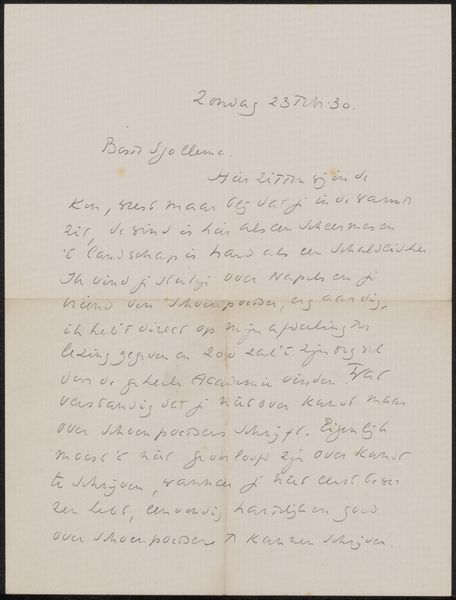 Zondag 23 Feb. 30.
Beste Sjollema.
Hier zitten wij in de
Kou, weest maar blij dat je in de warmte
zit, de wind is hier als een scheermes en
't landschap is hard als een
Ik vind je stukje over Napels en je
vriend den schoenpoetser, erg aardig,
ik heb 't direct op mijn afdeeling ter
lezing gegeven en zoo zal 't zijn weg wel
door de geheele Academie vinden. Wat
verstandig dat je niet over Kunst maar
over schoenpoetsers schrijft. Eigenlijk
moest 't niet geoorloofd zijn over Kunst
te schrijven, wanneer je niet eerst bewe-
zen hebt, eenvoudig hartelijk en goed
over schoenpoetsers te kunnen schrijven.